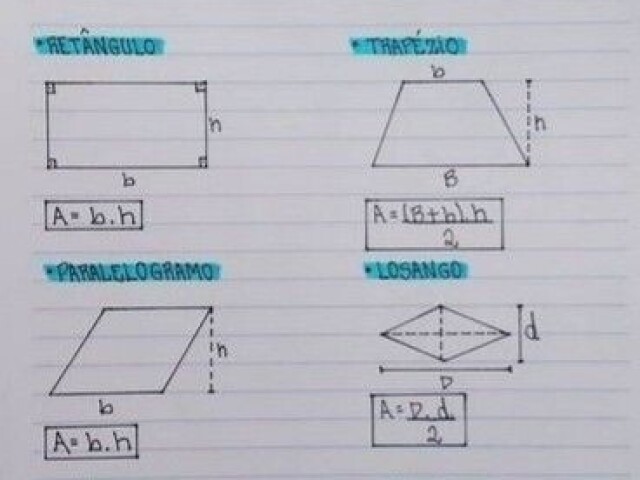 • RETÂNGULO
h
b
A = b.h
• TRAPÉZIO
b
h
B
A = (B+b).h
2
• PARALELOGRAMO
h
b
A = b.h
• LOSANGO
d
D
A = D.d
2